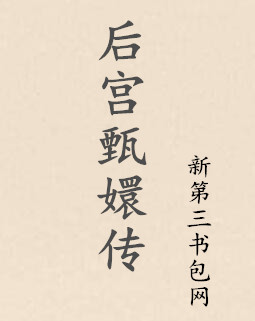 后宫甄嬛传
新第三书包网